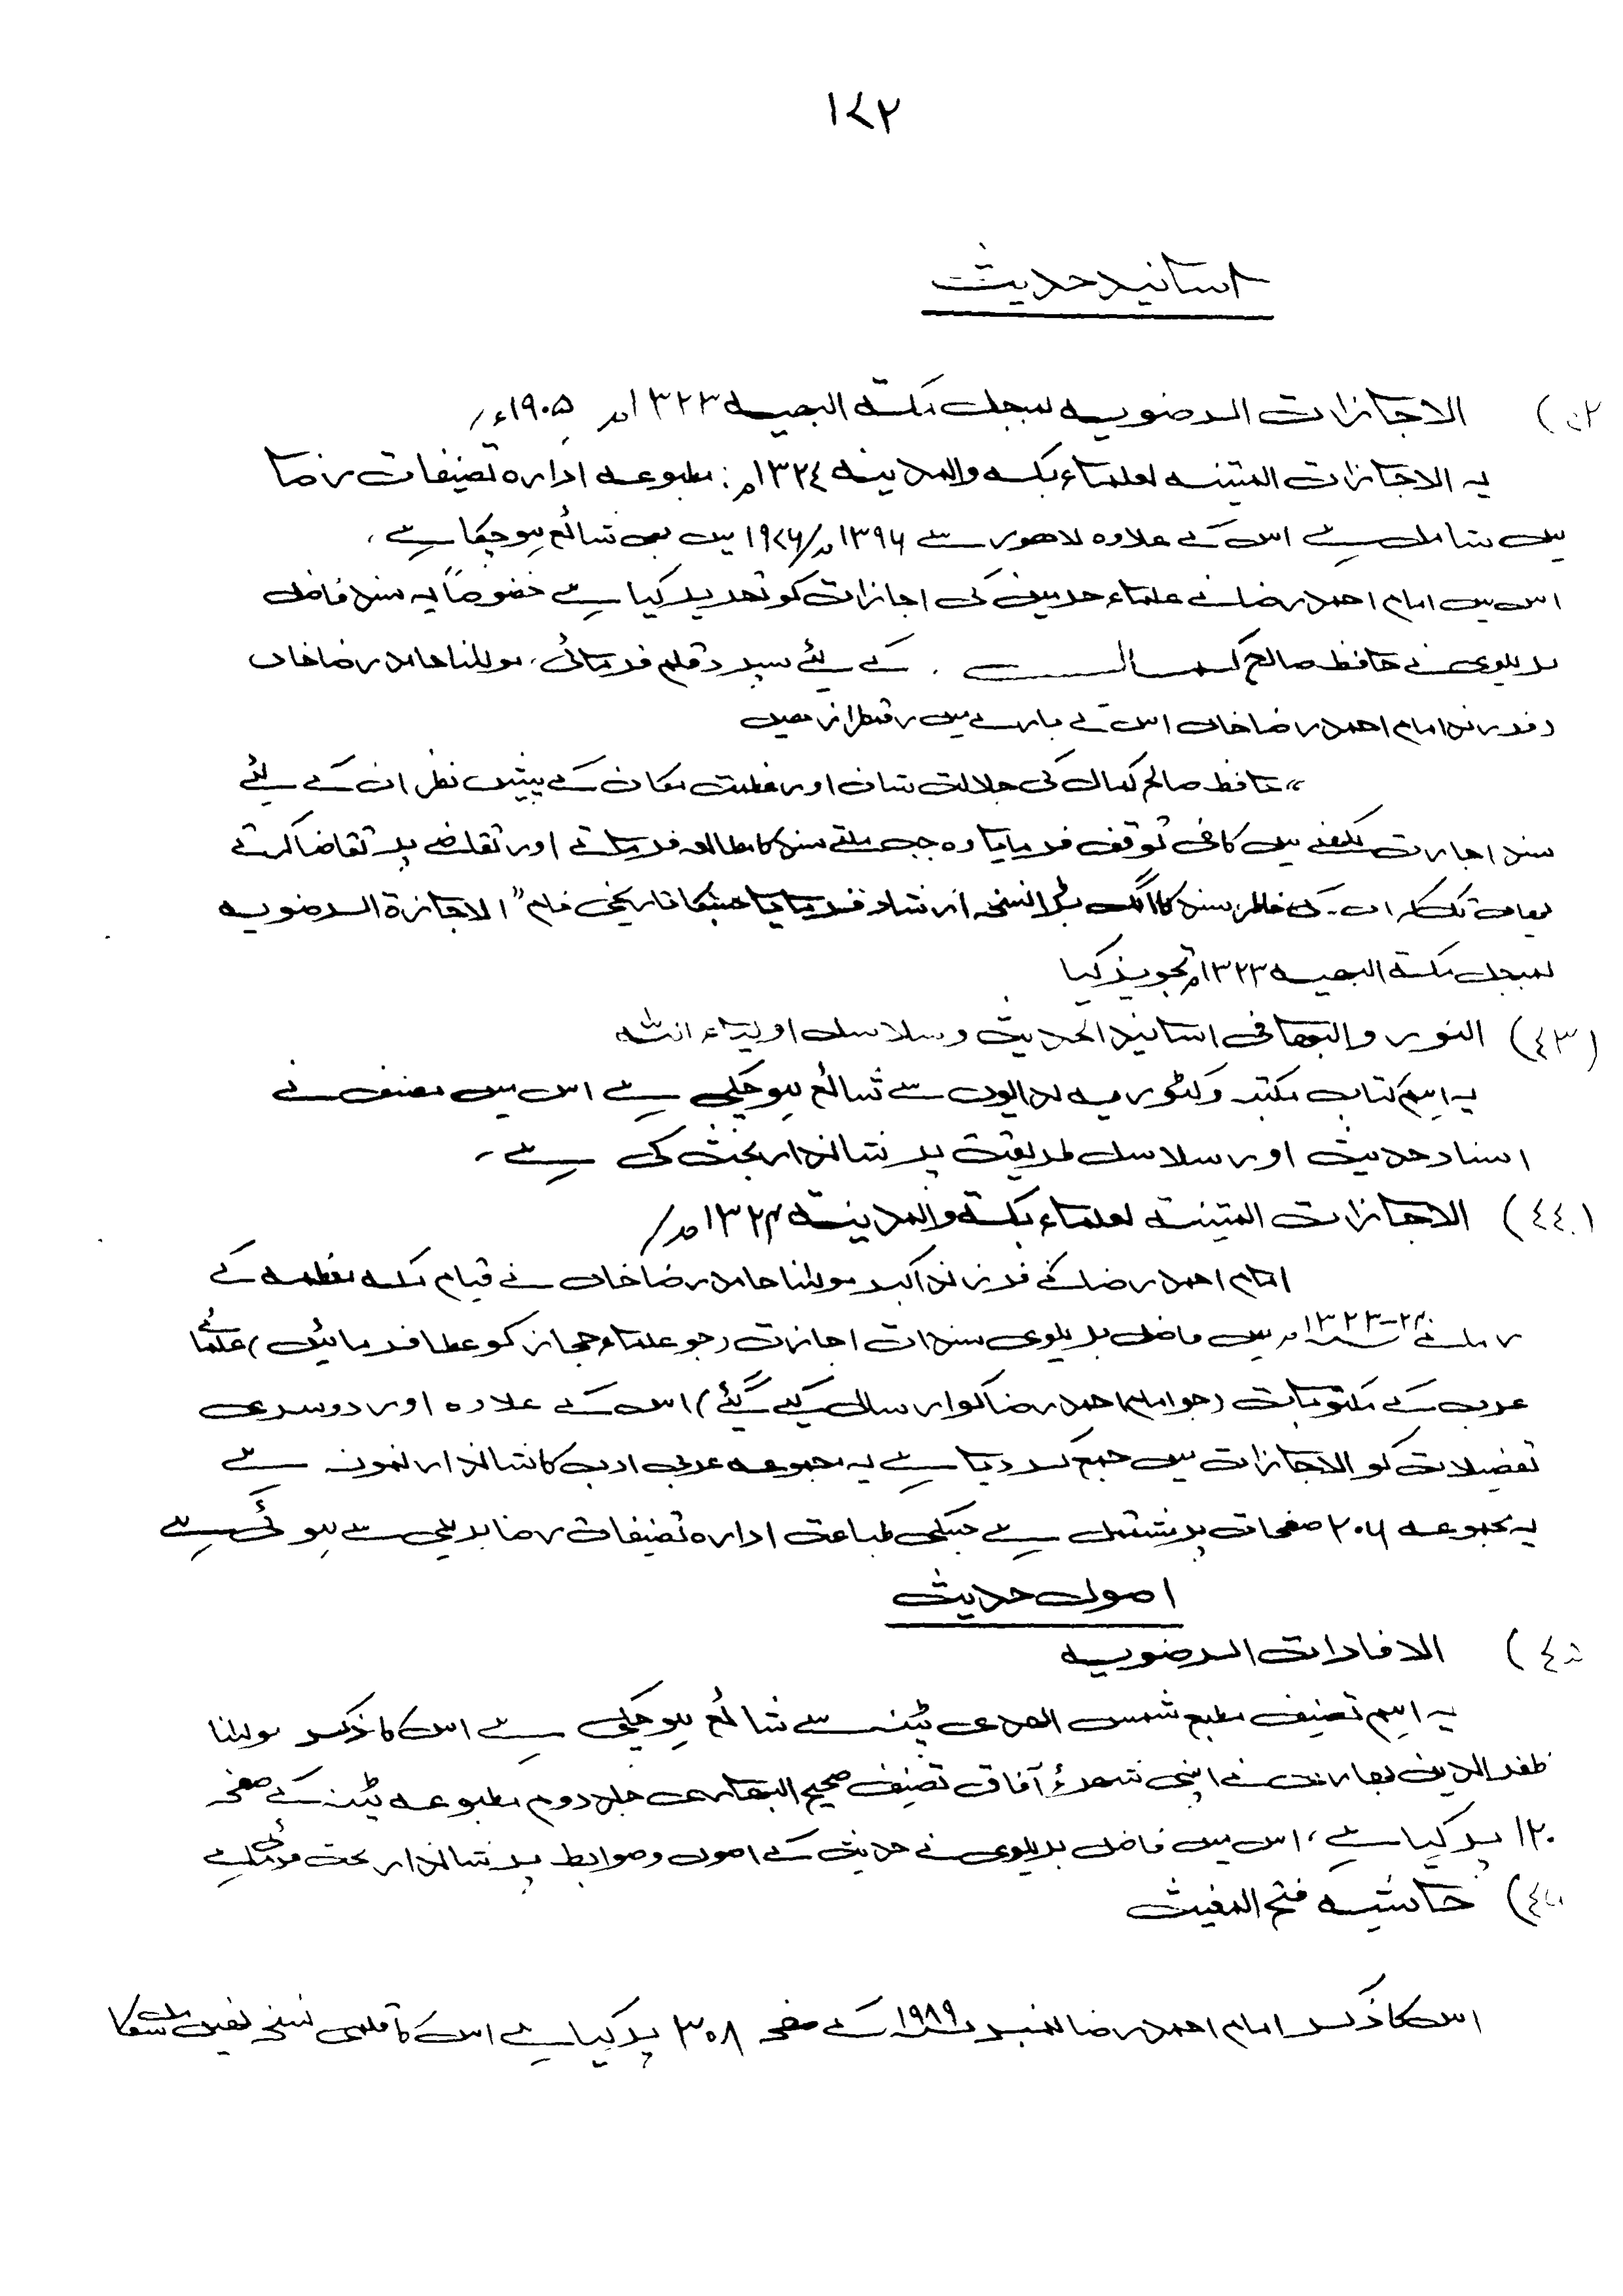 ۱۷۲
اسانید حدیث
الاجازات الرضویہ لمبجل مکتہ البھیہ ۱۳۲۳ھ ۱۹۰۵ء/
یہ الاجازات المتینہ لعلماء بکہ والمدینہ ۱۳۲٤ھ: مطبوعہ ادارہ تصنیفات رضا
میں شامل ہے اس کے علاوہ لاھور سے ۱۳۹۶ھ/۱۹۷۶ میں بھی شائع ہو چکا ہے ،
اس میں امام احمد رضا نے علماء حرمین کی اجازات کو تحریر کیا ہے خصوصاً یہ سند فاضل
بریلوی نے حافظ صالح کمال . کے لئے سپرد قلم فرمائی، مولٰنا حامد رضا خاں
فرزند امام احمد رضا خاں اس کے بارے میں رقمطراز ھیں
”حافظ صالح کمال کی جلالت شان اور عظمت مکان کے پیش نظر ان کے لئے
سند اجازت لکھنے میں کافی توقف فرمایا وہ جب ملتے سند کا مطالعہ فرماتے اور تقاضے پر تقاضا کرتے
یہاں تک کہ ان کی خاطر سند کا الگ بڑا نسخہ ارشاد فرمایا جسکا تاریخی نام ” الاجازة الرضویہ
لمبجل مکتہ البھیہ ۱۳۲۳ھ تجویز کیا
(٤۳) النور والبھا فی اسانید الحدیث و سلاسل اولیاء اللہ
یہ اہم کتاب مکتبہ وکٹوریہ بدایوں سے شائع ہو چکی ہے اس میں مصنف نے
اسناد حدیث اور سلاسل طریقت پر شاندار بحث کی ہے ۔
(٤٤) الاجازات المتینہ لعلماء بکتہ والمدینہ ۱۳۲۴ھ/
امام احمد رضا کے فرزند اکبر مولٰنا حامد رضا خاں نے قیام مکہ معظمہ کے
زمانے ۲۴-۱۳۲۳ھ میں فاضل بریلوی سندات اجازت (جو علماء حجاز کو عطا فرمائیں) علمائے
عرب کے مکتوبات (جو امام احمد رضا کو ارسال کیے گئے) اس کے علاوہ اور دوسری
تفصیلات کو الاجازات میں جمع کر دیا ہے یہ مجموعہ عربی ادب کا شاندار نمونہ ہے
یہ مجموعہ ۲۰۶ صفحات پر مشتمل ہے جسکی طباعت ادارہ تصنیفات رضا بریلی سے ہوئی ہے
اصول حدیث
الافادات الرضویہ
یہ اہم تصنیف مطبع شمس الھدی پٹنہ سے شائع ہو چکی ہے اس کا ذکر مولٰنا
ظفر الدین بہاری نے اپنی شہرۂ آفاق تصنیف صحیح البھاری جلد دوم مطبوعہ پٹنہ کے صفحہ
۱۲۰ پر کیا ہے ، اس میں فاضل بریلوی نے حدیث کے اصول و ضوابط پر شاندار بحث فرمائی ہے
حاشیہ فتح المغیث
اس کا ذکر امام احمد رضا نمبر ۱۹۸۹ کے صفحہ ۳۰۸ پر کیا ہے اس کا قلمی نسخہ نھیں مل سکا